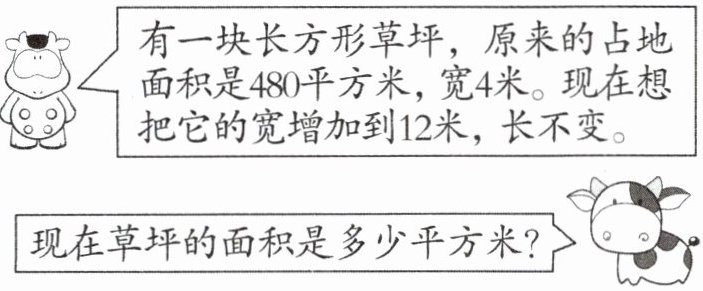 有一块长方形草坪，原来的占地
面积是480平方米，宽4米。现在想
把它的宽增加到12米，长不变。
现在草坪的面积是多少平方米?